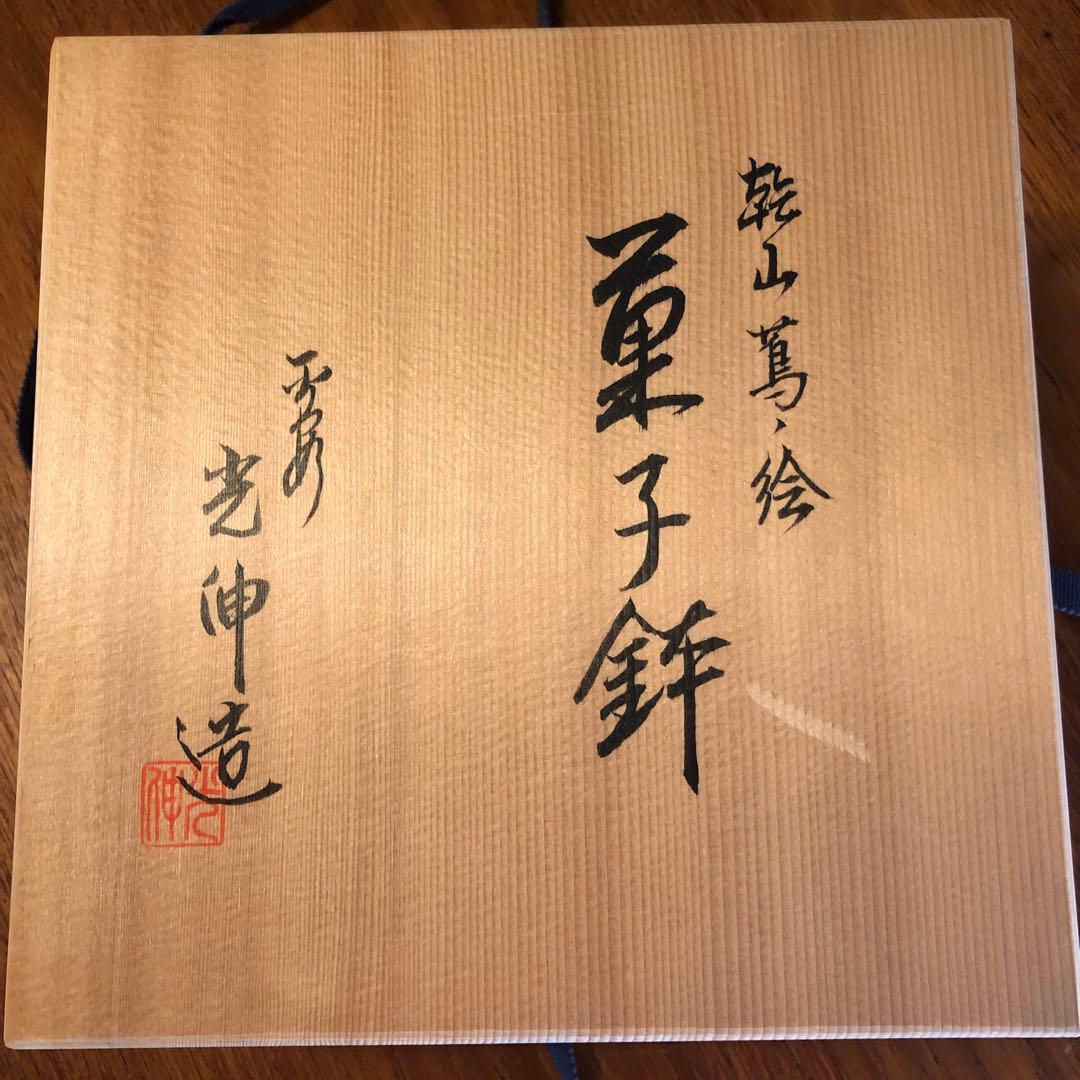 乾山蔦ノ絵
菓子鉢
平安
光伸造
光伸